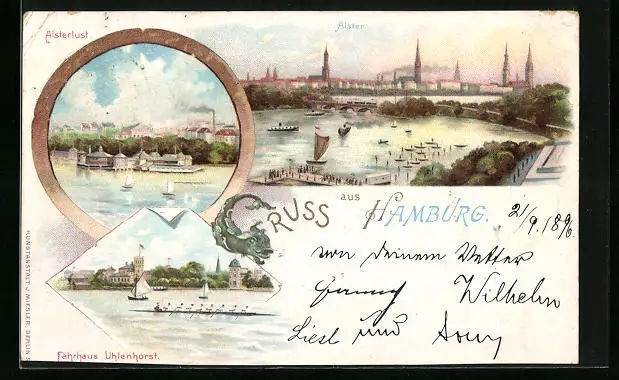 Alsterlust.
Alster
GRUSS aus HAMBURG.
21/9. 1896.
von deinem Vetter
Wilhelm
Liesl und
Fährhaus Uhlenhorst.
KUNSTANSTALT J. MIESLER, BERLIN